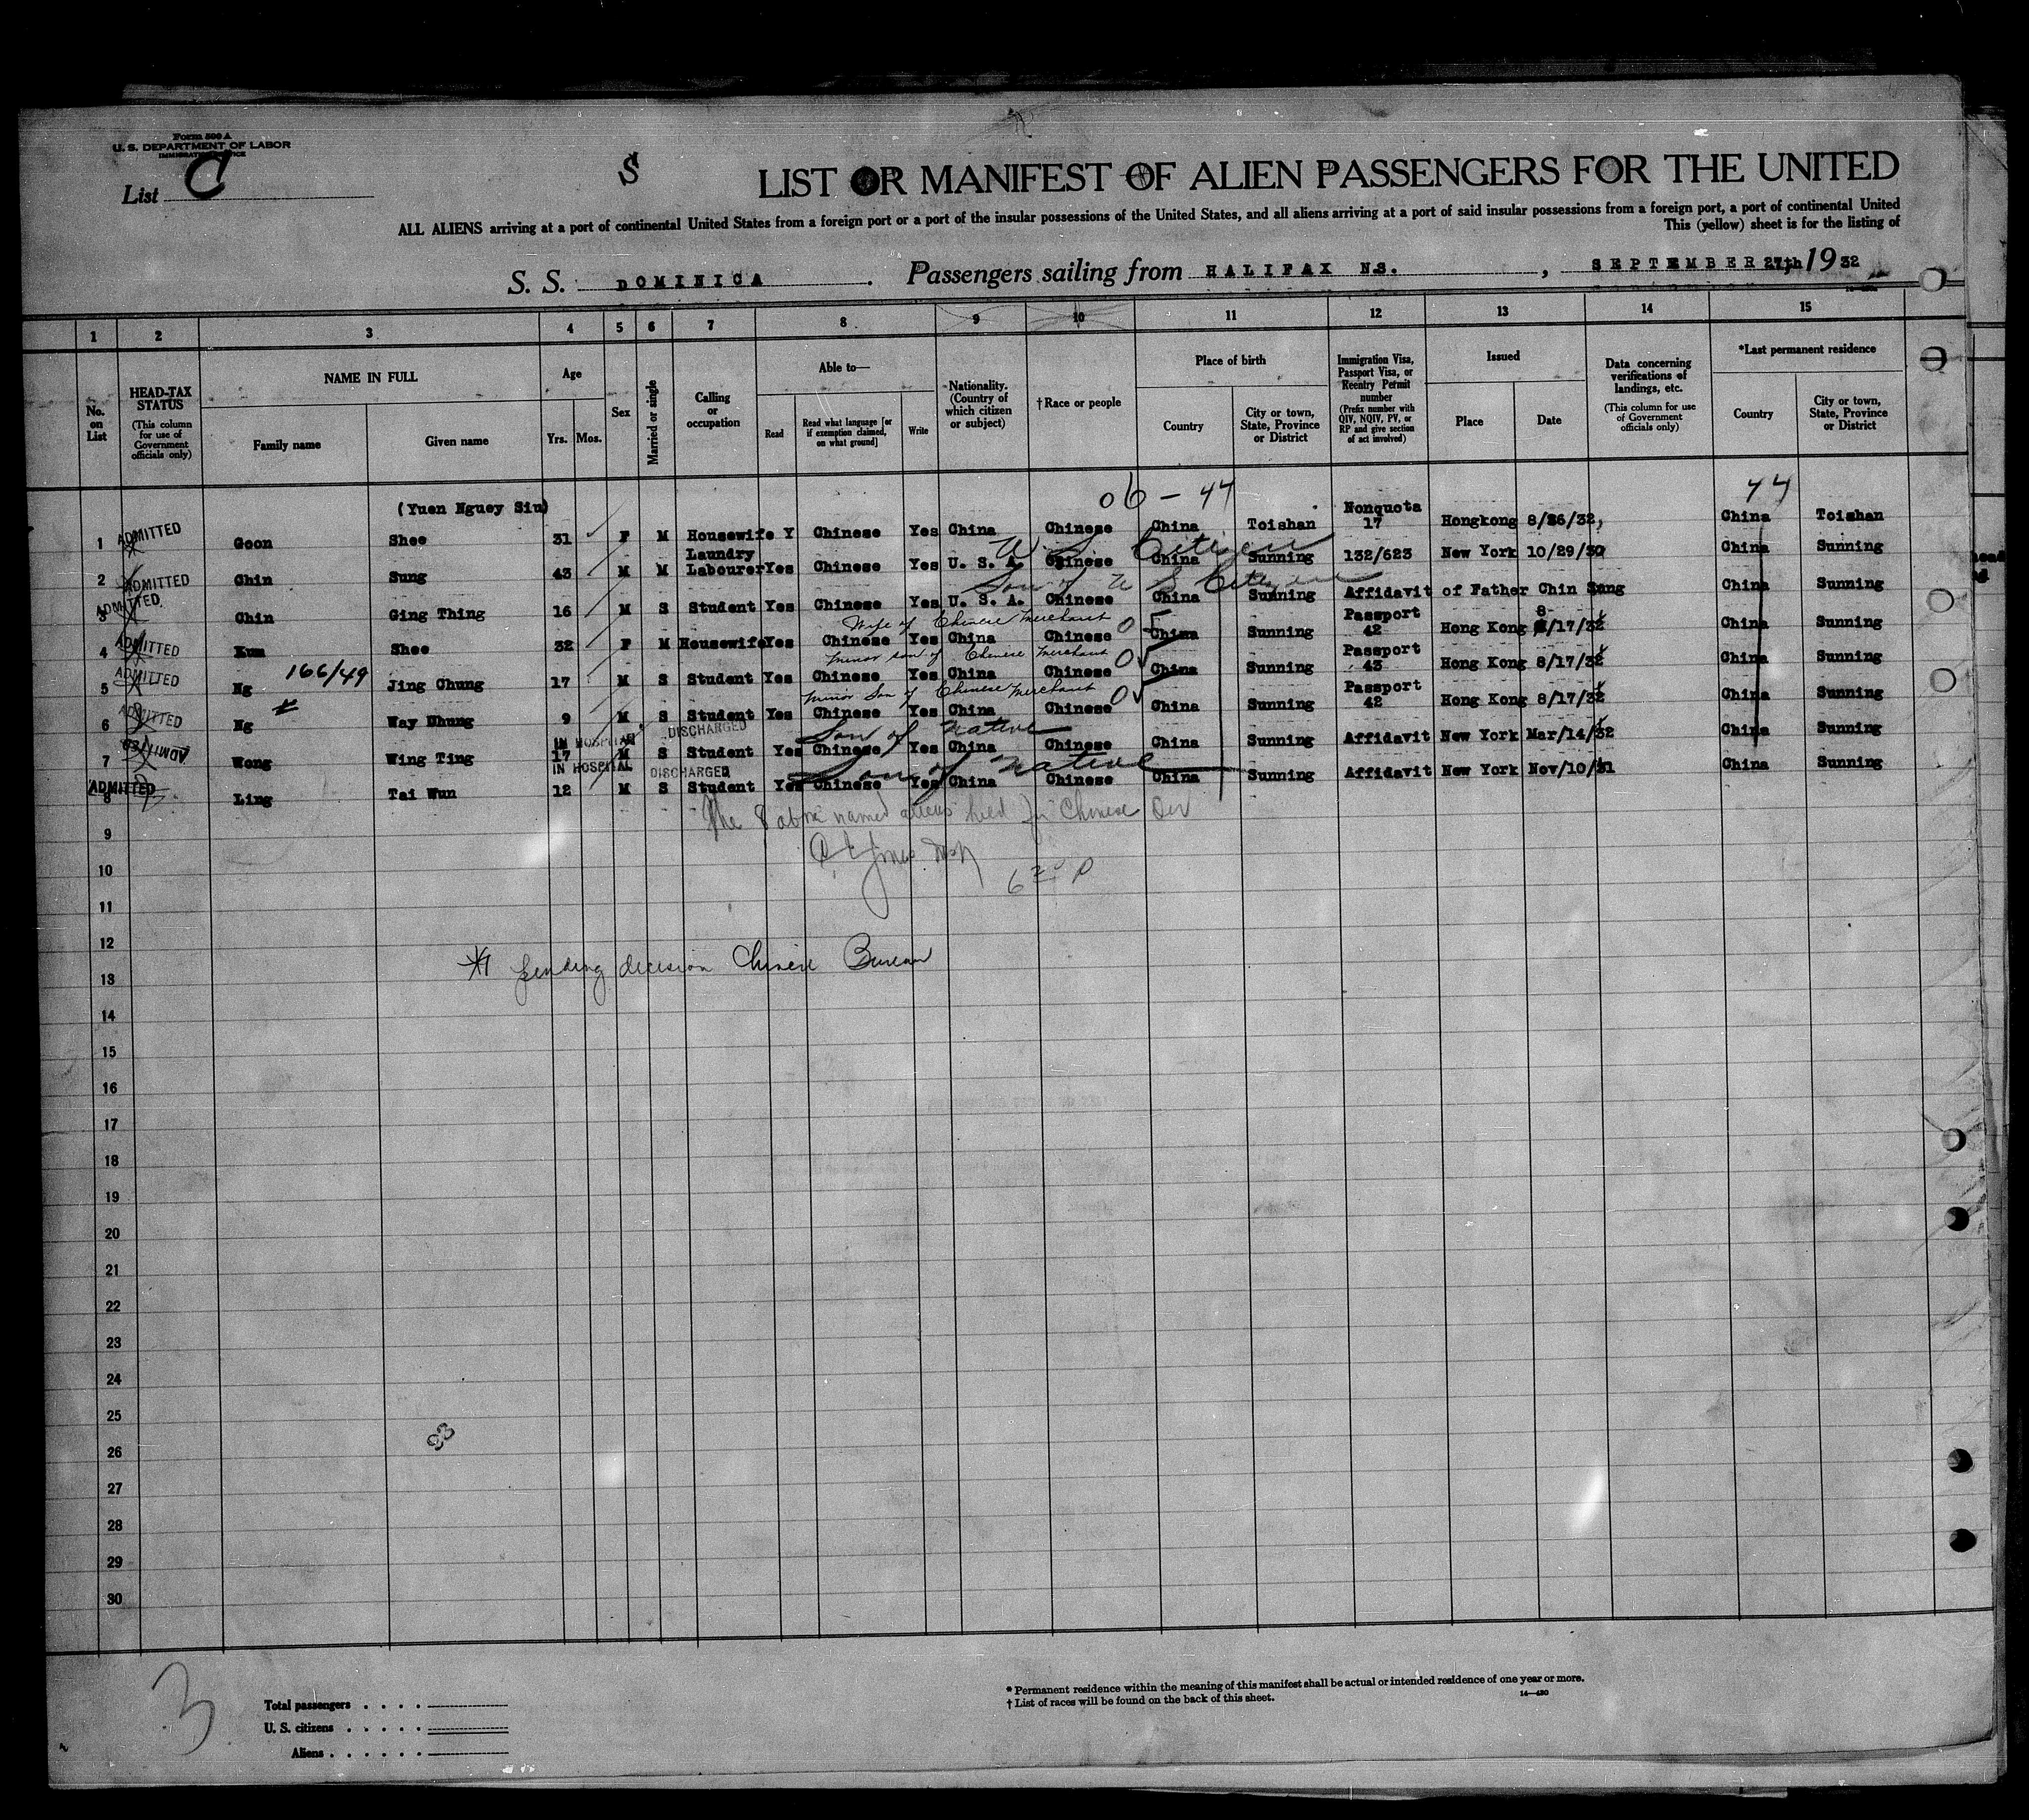 Form 500 A
U. S. DEPARTMENT OF LABOR
IMMIGRATION SERVICE
List C
S
LIST OR MANIFEST OF ALIEN PASSENGERS FOR THE UNITED
ALL ALIENS arriving at a port of continental United States from a foreign port or a port of the insular possessions of the United States, and all aliens arriving at a port of said insular possessions from a foreign port, a port of continental United
This (yellow) sheet is for the listing of
S. S. DOMINICA. Passengers sailing from HALIFAX N.S., SEPTEMBER 27th 1932
1 2 3 4 5 6 7 8 9 10 11 12 13 14 15
No. on List
HEAD-TAX STATUS (This column for use of Government officials only)
NAME IN FULL
Family name
Given name
Age
Yrs. Mos.
Sex
Married or single
Calling or occupation
Able to—
Read
Read what language [or if exemption claimed, on what ground]
Write
Nationality. (Country of which citizen or subject)
†Race or people
Place of birth
Country
City or town, State, Province or District
Immigration Visa, Passport Visa, or Reentry Permit number (Prefix number with QIV, NQIV, PV, or RP and give section of act involved)
Issued
Place
Date
Data concerning verifications of landings, etc. (This column for use of Government officials only)
*Last permanent residence
Country
City or town, State, Province or District
06 - 44 44
(Yuen Nguey Siu) Nonquota
1 ADMITTED Goon Shee 31 F M Housewife Y Chinese Yes China Chinese China Toishan 17 Hongkong 8/26/32, China Toishan
Laundry U S Citizen
2 ADMITTED Chin Sung 43 M M Labourer Yes Chinese Yes U. S. A. Chinese China Sunning 132/623 New York 10/29/30 China Sunning
Son of U S Citizen
3 ADMITTED Chin Ging Thing 16 M S Student Yes Chinese Yes U. S. A. Chinese China Sunning Affidavit of Father Chin Sung China Sunning
Wife of Chinese Merchant Passport 8
4 ADMITTED Kum Shee 32 F M Housewife Yes Chinese Yes China Chinese China Sunning 42 Hong Kong 8/17/32 China Sunning
166/49 minor son of Chinese Merchant Passport
5 ADMITTED Ng Jing Chung 17 M S Student Yes Chinese Yes China Chinese China Sunning 43 Hong Kong 8/17/32 China Sunning
minor Son of Chinese Merchant Passport
6 ADMITTED Ng Way Dhung 9 M S Student Yes Chinese Yes China Chinese China Sunning 42 Hong Kong 8/17/32 China Sunning
IN HOSPITAL DISCHARGED Son of Native
7 ADMITTED Wong Wing Ting 17 M S Student Yes Chinese Yes China Chinese China Sunning Affidavit New York Mar/14/32 China Sunning
IN HOSPITAL DISCHARGED Son of Native
8 ADMITTED Ling Tai Wun 12 M S Student Yes Chinese Yes China Chinese China Sunning Affidavit New York Nov/10/31 China Sunning
The 8 above named aliens held for Chinese
9
10
11
12
* pending decision Chinese Bureau
13
14
15
16
17
18
19
20
21
22
23
24
25
93
26
27
28
29
30
3
Total passengers
U. S. citizens
Aliens
* Permanent residence within the meaning of this manifest shall be actual or intended residence of one year or more.
† List of races will be found on the back of this sheet.
14—430